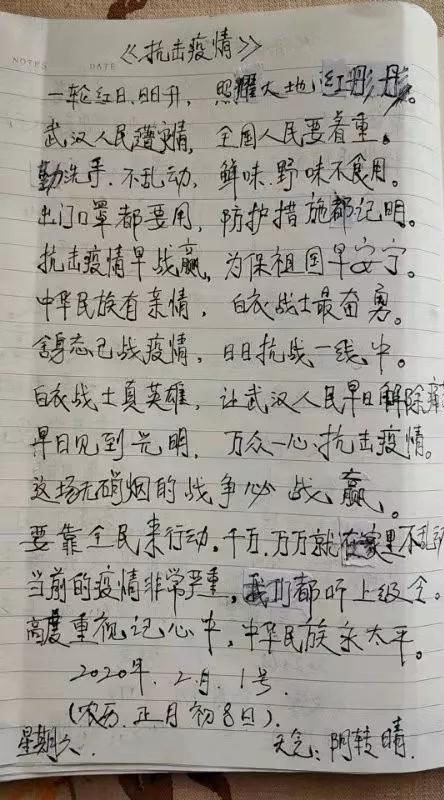 NOTES DATE
《抗击疫情》
一轮红日、日日升，照耀大地红彤彤。
武汉人民遭疫情，全国人民要看重。
勤洗手、不乱动，鲜味、野味不食用。
出门口罩都要用，防护措施都记明。
抗击疫情早战赢，为保祖国早安宁。
中华民族有亲情，白衣战士最奋勇。
舍身忘己战疫情，日日抗战一线中。
白衣战士真英雄，让武汉人民早日解除
早日见到光明，万众一心、抗击疫情。
这场无硝烟的战争必战赢。
要靠全民来行动。千万，万万就在家里不乱
当前的疫情非常严重，我们都听上级令。
高度重视记心中，中华民族永太平。
2020年.2月.1号.
(农历.正月初8日).
星期六. 天气：阴转晴.